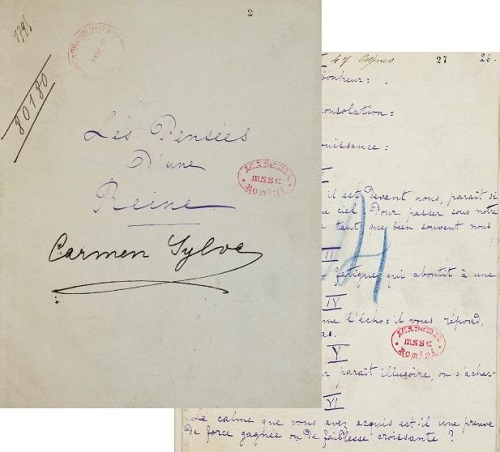 80180
Les Pensées
D'une
Reine
Carmen Sylva
ACADEMIA
MSSE
ROMÂNĂ
47 copies
27
26
bonheur:
consolation:
puissance:
I
il est devant nous, paraît si
ciel. Pour passer sous notre
tant
bien souvent nous
II
fatigues qui aboutit à une
IV
l'écho: il vous répond,
V
paraît illusoire, on s'achar-
ACADEMIA
MSSE
ROMÂNĂ
VI
Le calme que vous avez acquis est-il une preuve
de force gagnée ou de faiblesse croissante ?